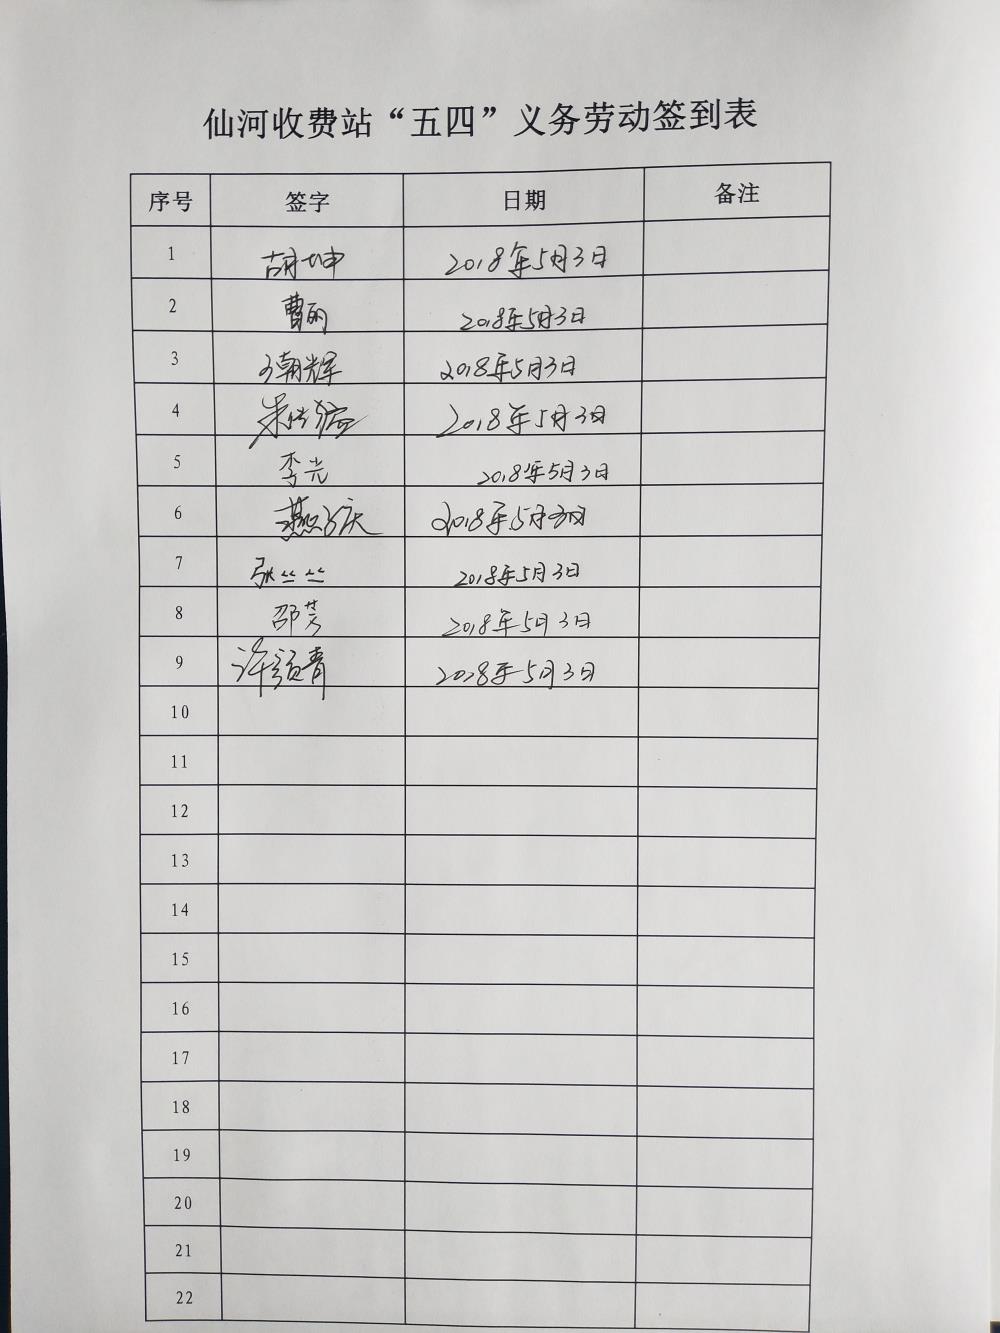 仙河收费站“五四”义务劳动签到表
序号 签字 日期 备注
1 胡坤 2018年5月3日
2 曹丽 2018年5月3日
3 王朝辉 2018年5月3日
4 2018年5月3日
5 李光 2018年5月3日
6 燕子庆 2018年5月3日
7 张丝丝 2018年5月3日
8 邵芳 2018年5月3日
9 2018年5月3日
10
11
12
13
14
15
16
17
18
19
20
21
22